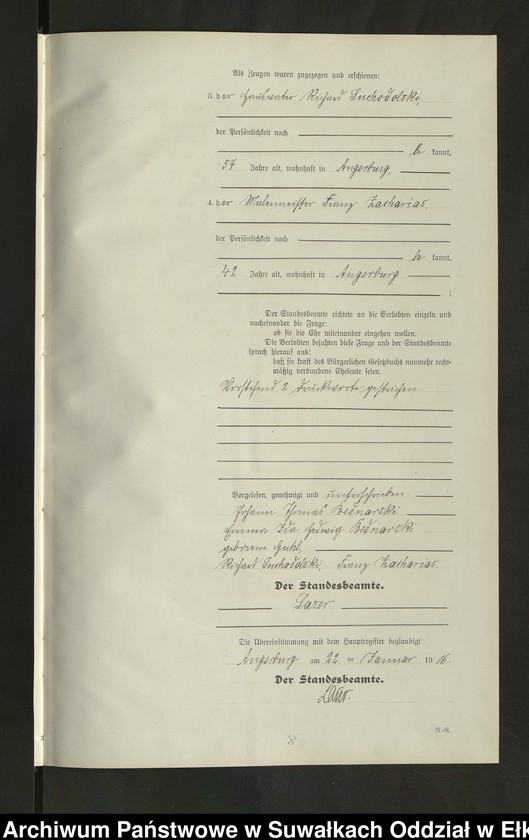 Als Zeugen waren zugezogen und erschienen:
3. der Hausvater Richard Suchodolski,
der Persönlichkeit nach
be kannt,
57 Jahre alt, wohnhaft in Angerburg,
4. der Malermeister Franz Zacharias,
der Persönlichkeit nach
be kannt,
42 Jahre alt, wohnhaft in Angerburg
;
Der Standesbeamte richtete an die Verlobten einzeln und
nacheinander die Frage:
ob sie die Ehe miteinander eingehen wollen.
Die Verlobten bejahten diese Frage und der Standesbeamte
sprach hierauf aus:
daß sie kraft des Bürgerlichen Gesetzbuchs nunmehr recht-
mäßig verbundene Eheleute seien.
Vorstehend 2 Druckworte gestrichen.
Vorgelesen, genehmigt und unterschrieben
Johann Thomas Bednarski
Emma Ida Hedwig Bednarski
geborene
Richard Suchodolski, Franz Zacharias.
Der Standesbeamte.
Die Übereinstimmung mit dem Hauptregister beglaubigt
Angerburg am 22 = Januar 19 16.
Der Standesbeamte.
R.-R.
8
Archiwum Państwowe w Suwałkach Oddział w Ełk